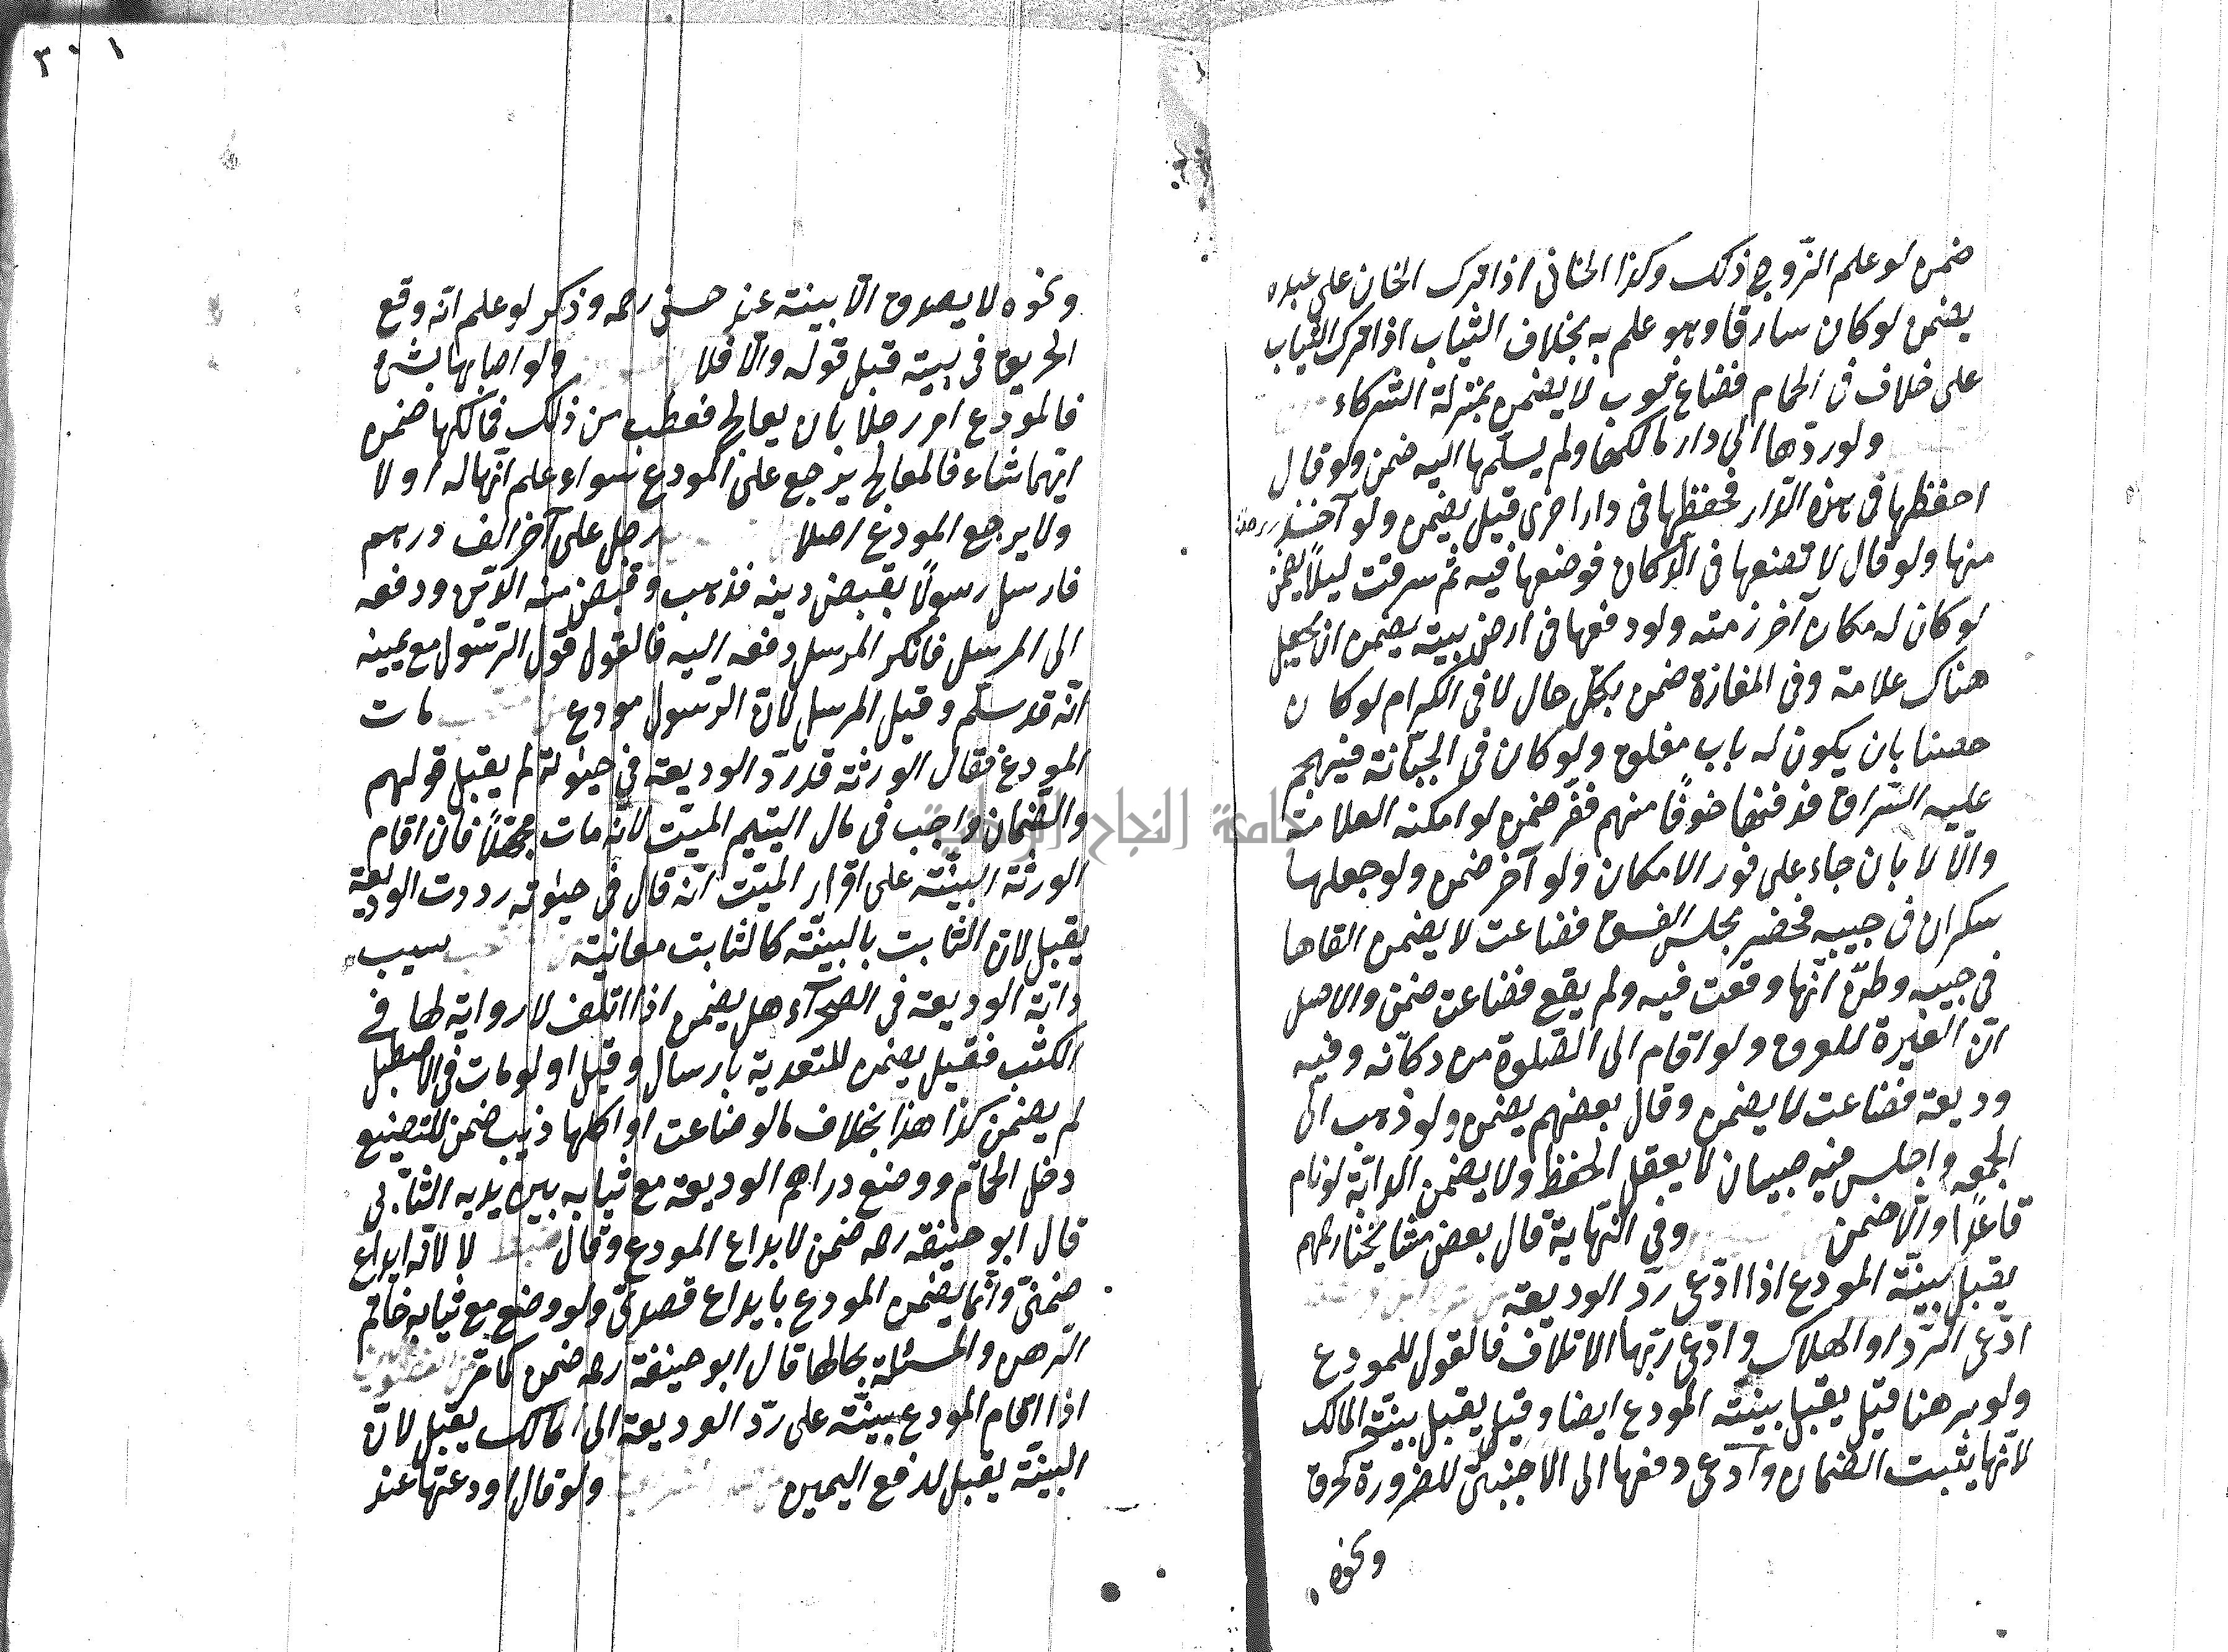 ضمن لو علم الزّوج ذلك وكذا الخانى اذا ترك الخان على عبده
يضمن لو كان سارقا وهو علم به بخلاف الثياب اذا ترك الثياب
على خلاف فى الحمام فضاع ثوب لا يضمن بمنزلة الشركاء
ولو ردّها الى دار مالكها ولم يسلّمها اليه ضمن ولو قال
احفظها فى هذه الدّار فحفظها فى دار اخرى قيل يضمن ولو
منها ولو قال لا تضعها فى الدّكان فوضعها فيه ثم سرقت ليلاً يضمن
لو كان له مكان آخر ولو دفعها فى ارض بيته يضمن ان يجعل
هناك علامة وفى المفازة ضمن بكلّ حال لا فى الكرام لو كان
حصنا بان يكون له باب مغلوق ولو كان فى الجبّانة فيهجم
عليه السّراق فدفنها خوفًا منهم ففرّ ضمن لو امكنه العلامة
والّا لا بان جاء على فور الامكان ولو آخر ضمن ولو جعلها
سكران فى جيبه فحضير مجلس الفسق فضاعت لا يضمن القاها
فى جيبه وظنّ انّها وقعت فيه ولم يقع فضاعت ضمن والاصل
انّ العبرة للعرف ولو اقام الى الصّلوة من دكانه وفيه
وديعة فضاعت لا يضمن وقال بعضهم يضمن ولو ذهب الى
الجمعه واجلس فيه صبيان لا يعقل الحفظ ولا يضمن الدابّة لو نام
قاعدًا والّا ضمن وفى النّهاية قال بعض مشايخنا رحهم
يقبل بينّة المودع اذا ادّعى ردّ الوديعة
ادّعى الرّد او الهلاك وادّعى ربّها الاتلاف فالقول للمودع
ولو برهنا قيل يقبل بينّته المودع ايضا وقيل يقبل بينّة المالك
لانّها يثبت الضمان وادّعى دفعها الى الاجنبىّ للضرورة كحرق
ونحوه
٣٠١
ونحوه لا يصدق الّا ببينة عند حسن رحه وذكر لو علم انّه وقع
الحريق فى بيته قبل قوله والّا فلا ولو اصابها بشئ
فالمودع امر رجلا بان يعالج فعطب من ذلك فمالكها ضمن
ايّهما شاء فالمعالج يرجع على المودع سواء علم انّها له او لا
ولا يرجع المودع اصلا رجل على آخر الف درهم
فارسل رسولًا بقبض دينه فذهب وقبض منه الدّين ودفعه
الى المرسل فانكر المرسل دفعه اليه فالقول قول الرّسول مع يمينه
انّه قد سلّم وقيل المرسل لانّ الرّسول مودع مات
المودع فقال الورثة قد ردّ الوديعة فى حيٰوته لم يقبل قولهم
والضّمان واجب فى مال اليتيم الميّت لانّه مات مجهّلاً فان اقام
الورثة البيّنة على اقرار الميّت انّه قال فى حيٰوته رددت الوديعة
يقبل لانّ الثابت بالبيّنة كالثابت معانية سيب
دابّة الوديعة فى الصّحرآء هل يضمن اذا اتلف لا رواية لها فى
الكتب فقيل يضمن للتعدية بارسال وقيل او لو مات فى الاصطبل
لم يضمن كذا هذا بخلاف مالو ضاعت او اكلها ذيب ضمن للتضيع
دخل الحمّام ووضع دراهم الوديعة مع ثيابه بين يديه الثيّابى
قال ابو حنيفه رحه ضمن لايداع المودع وقال لا لانّه ايداع
ضمنىّ وانّما يضمن المودع بايداع قصدىّ ولو وضع مع ثيابه خاتم
الرّهن والمسئلة بحالها قال ابو حنيفة رحه ضمن كما مرّ
اذا اقام المودع بينّة على ردّ الوديعة الى المالك يقبل لانّ
البينّة يقبل لدفع اليمين ولو قال اودعتها عند
جامعة النجاح الوطنية